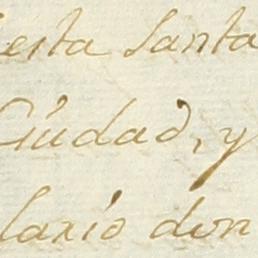 esta Santa
Ciudad, y
lario don